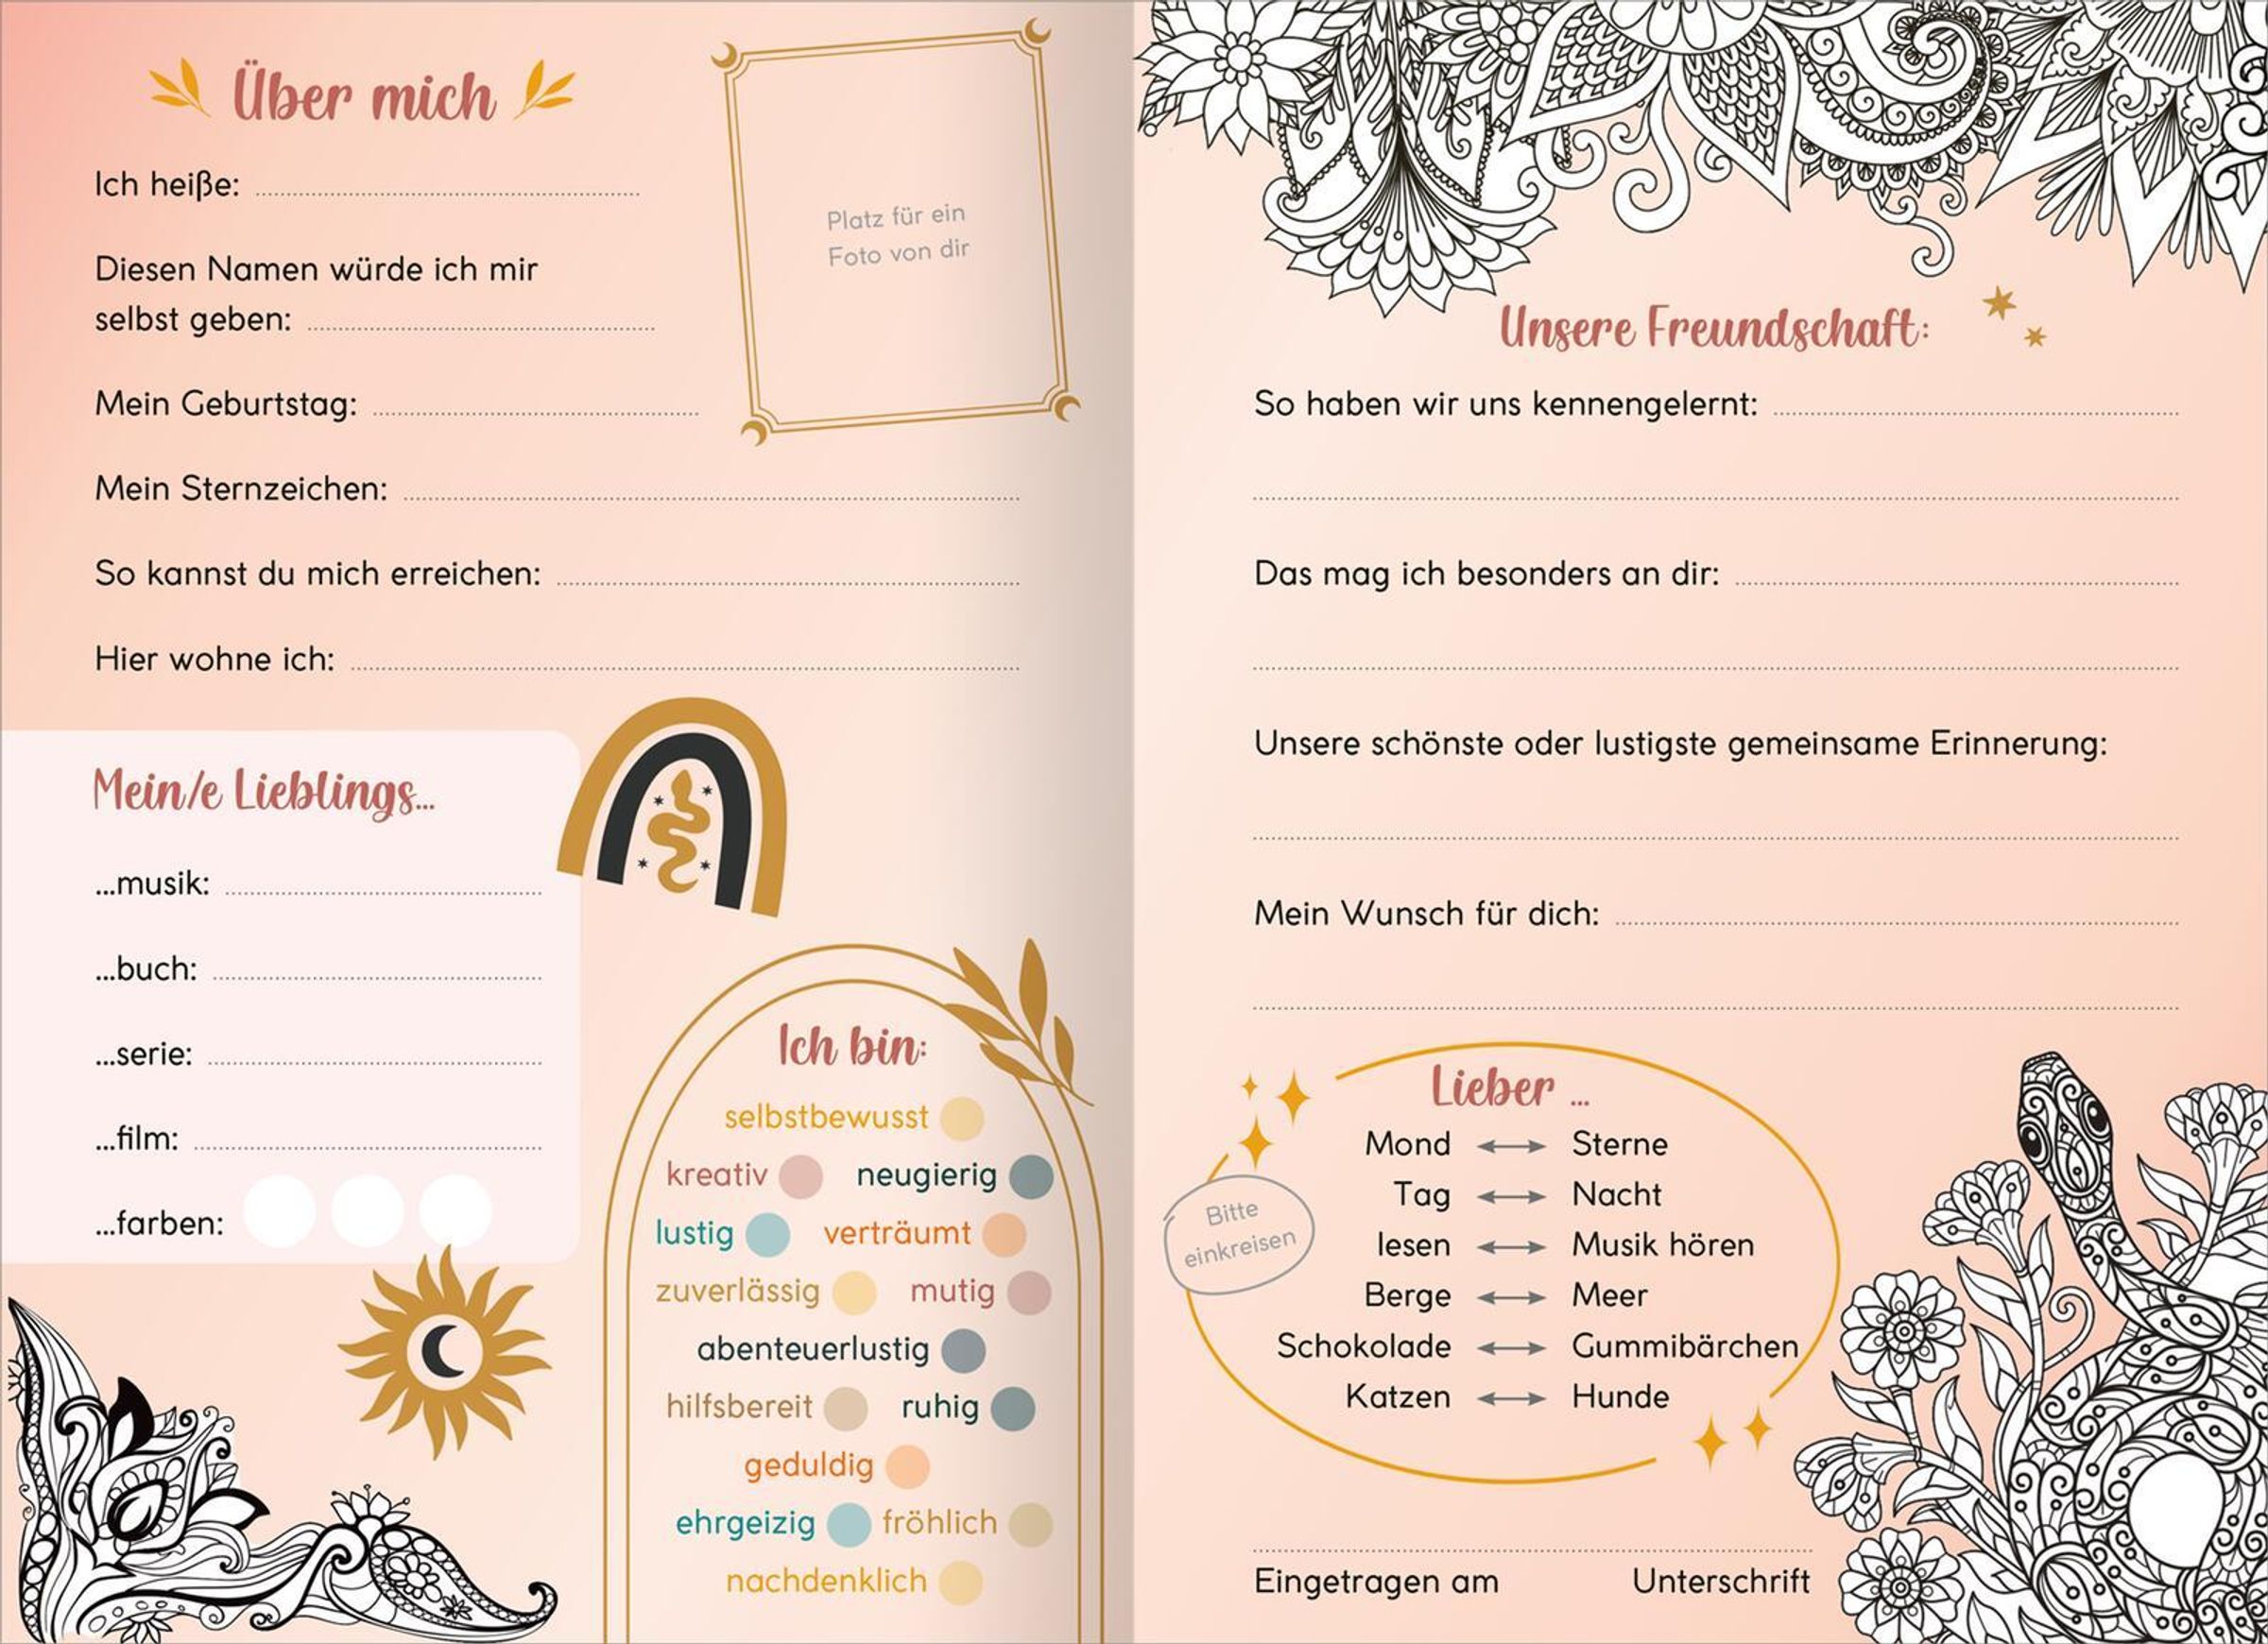 Über mich
Platz für ein
Foto von dir
Ich heiße:
Diesen Namen würde ich mir
selbst geben:
Mein Geburtstag:
Mein Sternzeichen:
So kannst du mich erreichen:
Hier wohne ich:
Mein/e Lieblings...
...musik:
...buch:
...serie:
...film:
...farben:
Ich bin:
selbstbewusst
kreativ neugierig
lustig verträumt
zuverlässig mutig
abenteuerlustig
hilfsbereit ruhig
geduldig
ehrgeizig fröhlich
nachdenklich
Unsere Freundschaft:
So haben wir uns kennengelernt:
Das mag ich besonders an dir:
Unsere schönste oder lustigste gemeinsame Erinnerung:
Mein Wunsch für dich:
Lieber ...
Bitte
einkreisen
Mond ↔ Sterne
Tag ↔ Nacht
lesen ↔ Musik hören
Berge ↔ Meer
Schokolade ↔ Gummibärchen
Katzen ↔ Hunde
Eingetragen am Unterschrift